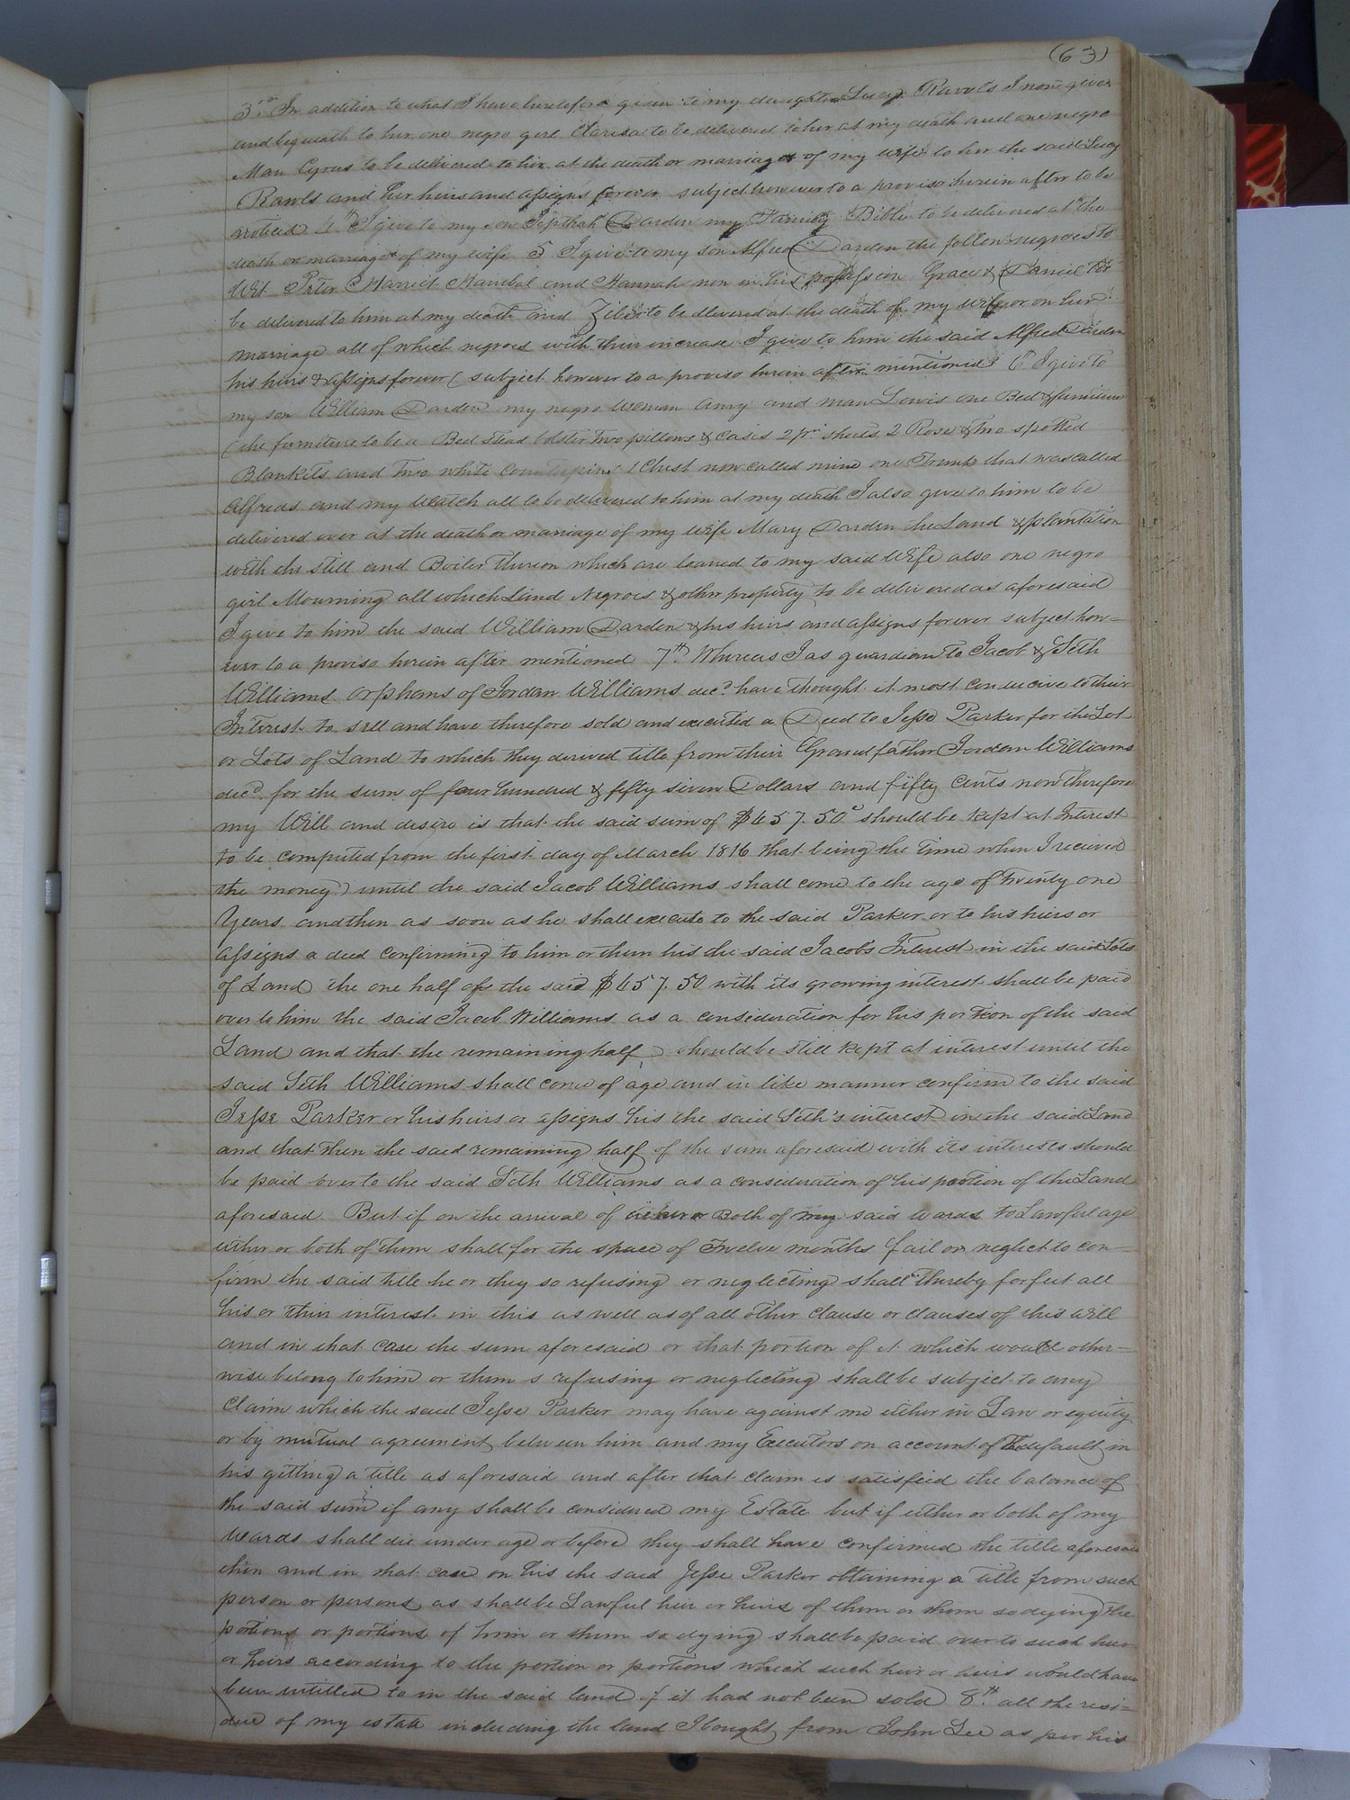 (63)
3rd In addition to what I have heretofore given to my daughter Lucy Rawls I now give
and bequeath to her one negro girl Clarisa to be delivered to her at my death and one negro
Man Cyrus to be delivered to her at the death or marriage of my wife to her the said Lucy
Rawls and her heirs and assigns forever subject however to a proviso herein after to be
noticed 4th I give to my son Jepthah Darden my Family Bible to be delivered at the
death or marriage of my wife 5 I give to my son Alfred Darden the follow negroes to
Wit Peter Harriet Hanibal and Hannah now in his possession Grace & Daniel to
be delivered to him at my death and Zilba to be dlivered at the death of my wife or on her
marriage all of which negroes with their increase I give to him the said Alfred Darden
his heirs & assigns forever (subject however to a proviso herein after mentioned 6th I give to
my son William Darden my negro Woman Amy and man Lewis one Bed & furniture
(the furniture to be a Bed Stead bolster two pillows & cases 2 pr sheets 2 Rose & two spotted
Blankets and two white counterpins 1 Chest now called mine one Trunk that was called
Alfreds and my Watch all to be delivered to him at my death I also give to him to be
delivered over at the death or marriage of my wife Mary Darden the Land & plantation
with the still and Boiler thereon which are loaned to my said Wife also one negro
girl Mourning all which Land Negroes & other property to be delivered as aforesaid
I give to him the said William Darden & his heirs and assigns forever subject how=
ever to a proviso herein after mentioned 7th. Whereas I as guardian to Jacob & Seth
Williams Orphans of Jordan Williams decd have thought it most conducive to their
Interest to sell and have therefore sold and executed a Deed to Jesse Parker for the Lot
or Lots of Land to which they derived title from their Grandfather Jordan Williams
decd. for the sum of four hundred & fifty seven Dollars and fifty Cents now therefore
my Will and desire is that the said sum of $457.50c should be kept at Interest
to be computed from the first day of March 1816 that being the time when I recieved
the money) until the said Jacob Williams shall come to the age of twenty one
Years and then as soon as he shall execute to the said Parker or to his heirs or
assigns a deed confirming to him or them his the said Jacob's Interest in the said Lots
of Land the one half of the said $457.50 with its growing interest shall be paid
over to him the said Jacob Williams as a consideration for his portion of the said
Land and that the remaining half should be still kept at interest until the
said Seth Williams shall come of age and in like manner confirm to the said
Jesse Parker or his heirs or assigns his the said Seth's interest in the said Land
and that then the said remaining half of the sum aforesaid with its interests should
be paid over to the said Seth Williams as a consideration of his portion of the Land
aforesaid But if on the arrival of either or Both of my said wards to Lawful age
either or both of them shall for the space of Twelve months fail or neglect to con=
firm the said title he or they so refusing or neglecting shall thereby forfeit all
his or their interest in this as well as of all other clause or clauses of this will
and in that case the sum aforesaid or that portion of it which would other=
wise belong to him or them s refusing or neglecting shall be subject to any
Claim which the said Jesse Parker may have against me either in Law or equity
or by mutual agreement between him and my Executors on account of default in
his getting a title as aforesaid and after that claim is satisfied the balance of
the said sum if any shall be considered my Estate but if either or both of my
wards shall die under age or before they shall have confirmed the title aforesaid
then and in that case on his the said Jesse Parker obtaining a title from such
person or persons as shall be Lawful heir or heirs of them or them so dying the
portions or portions of him or them so dying shall be paid over to such heir
or heirs according to the portion or portions which such heir or heirs would have
been intitled to in the said land if it had not been sold 8th. all the resi=
due of my estate including the land I bought from John Lee as per his